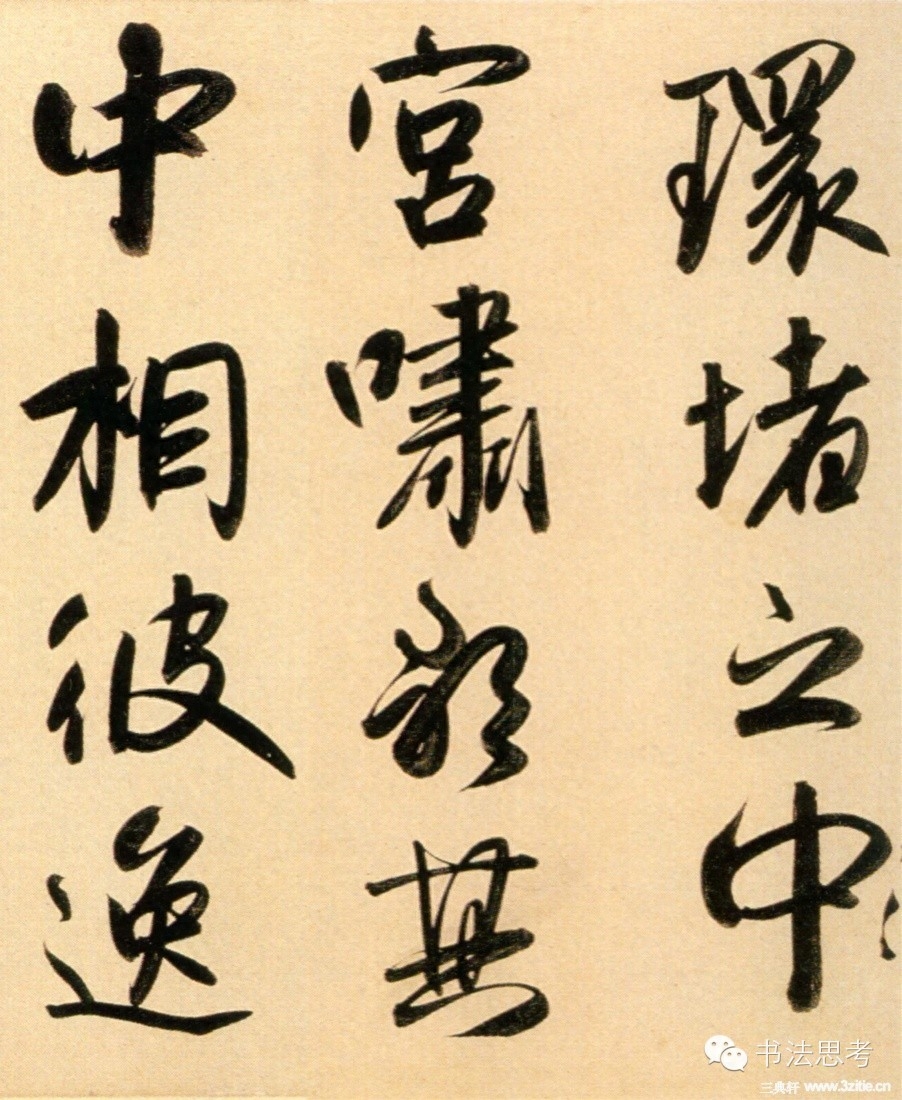 環堵之中
宮嘯歌其
中相彼逸
书法思考
三典轩 www.3zitie.cn